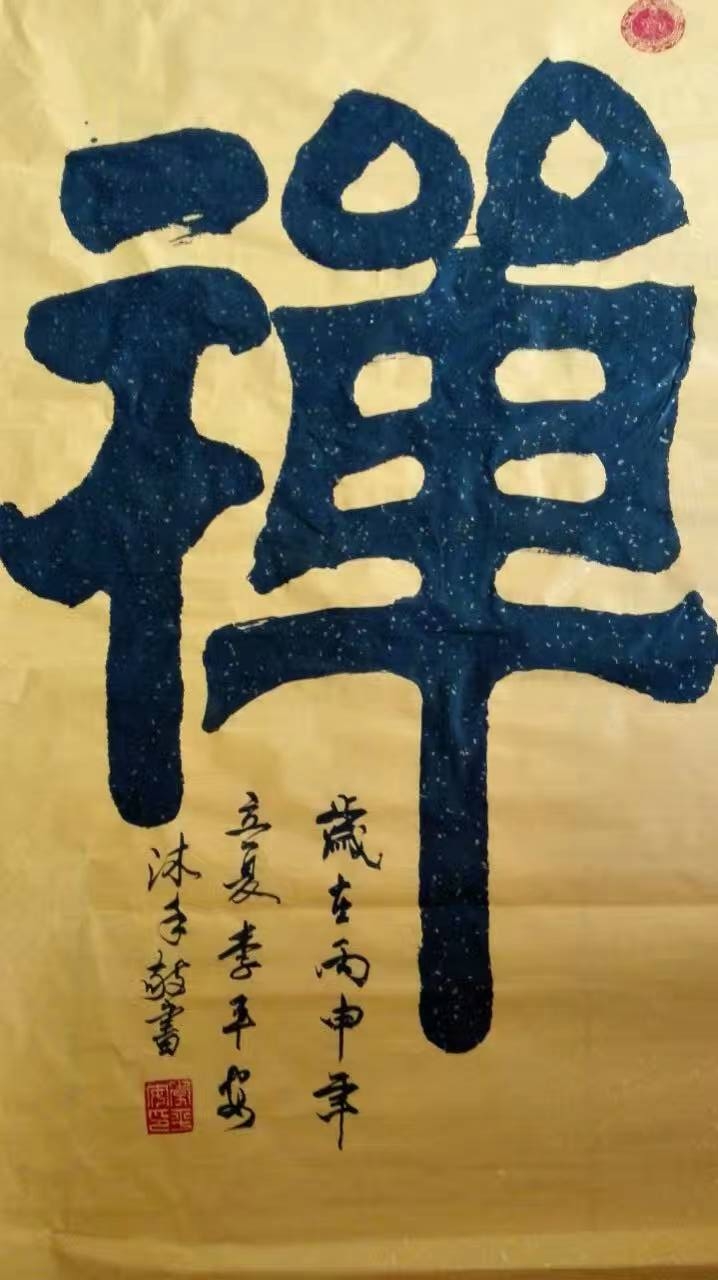 禪
歲在丙申年
立夏李平安
沐手敬書